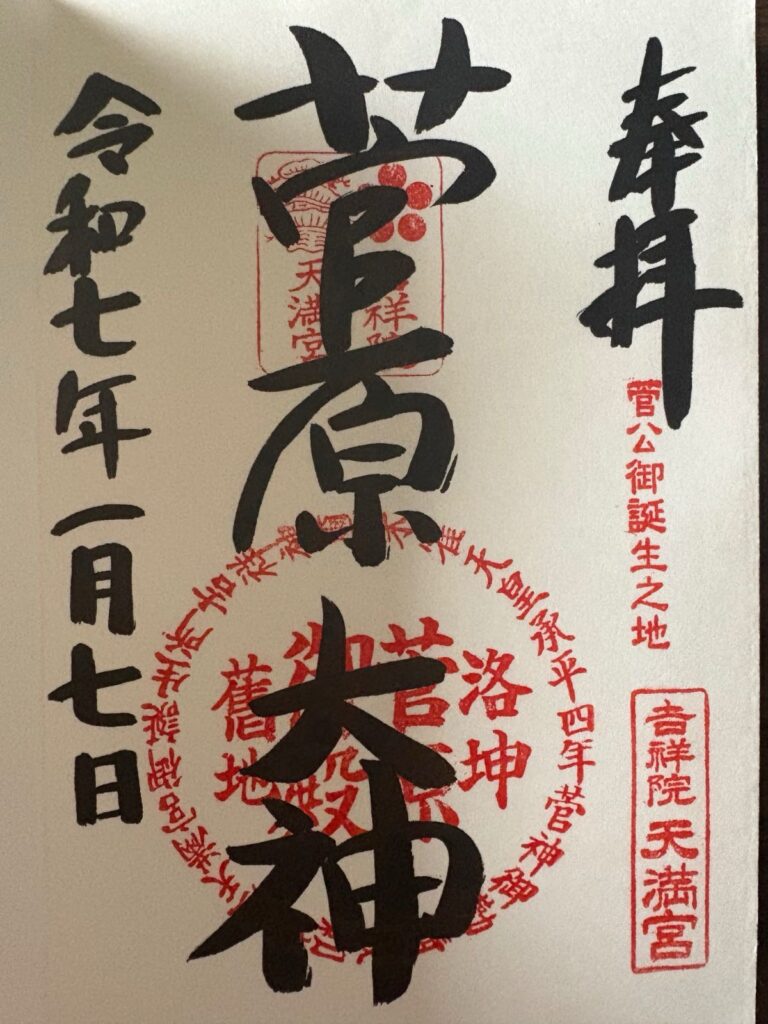 奉拝
菅公御誕生之地
吉祥院天満宮
菅原大神
天満宮
祥院
朱雀天皇承平四年菅神御
洛坤
菅原
御殿
舊地
令和七年一月七日